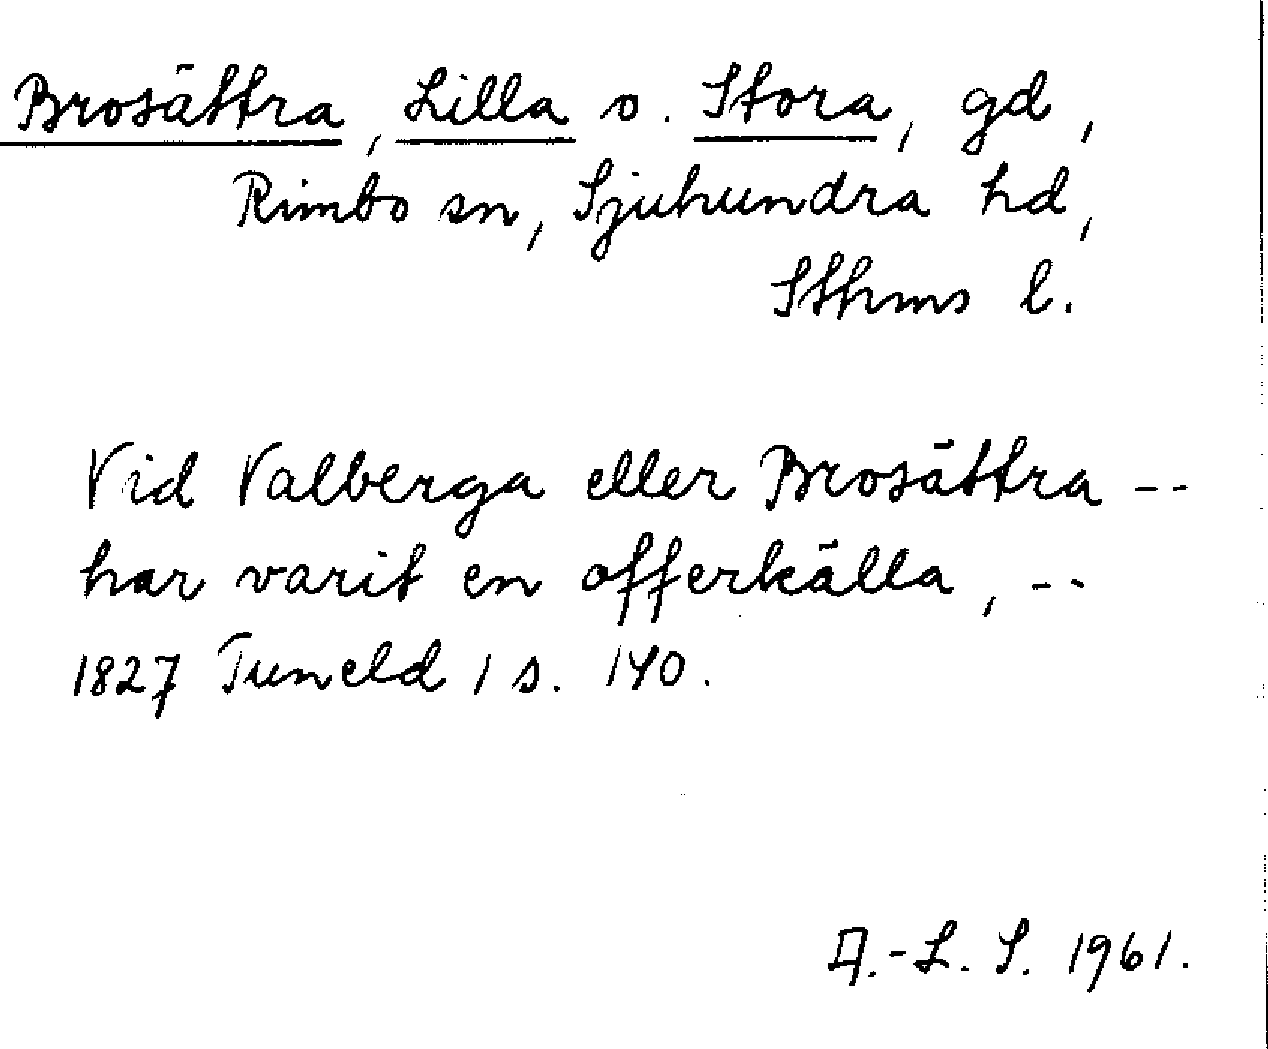 Brosättra, Lilla o. Stora, gd,
Rimbo sn, Sjuhundra hd,
Sthms l.
Vid Valberga eller Brosättra --
har varit en offerkälla, --
1827 Tuneld 1 s. 140.
A.-L. S. 1961.